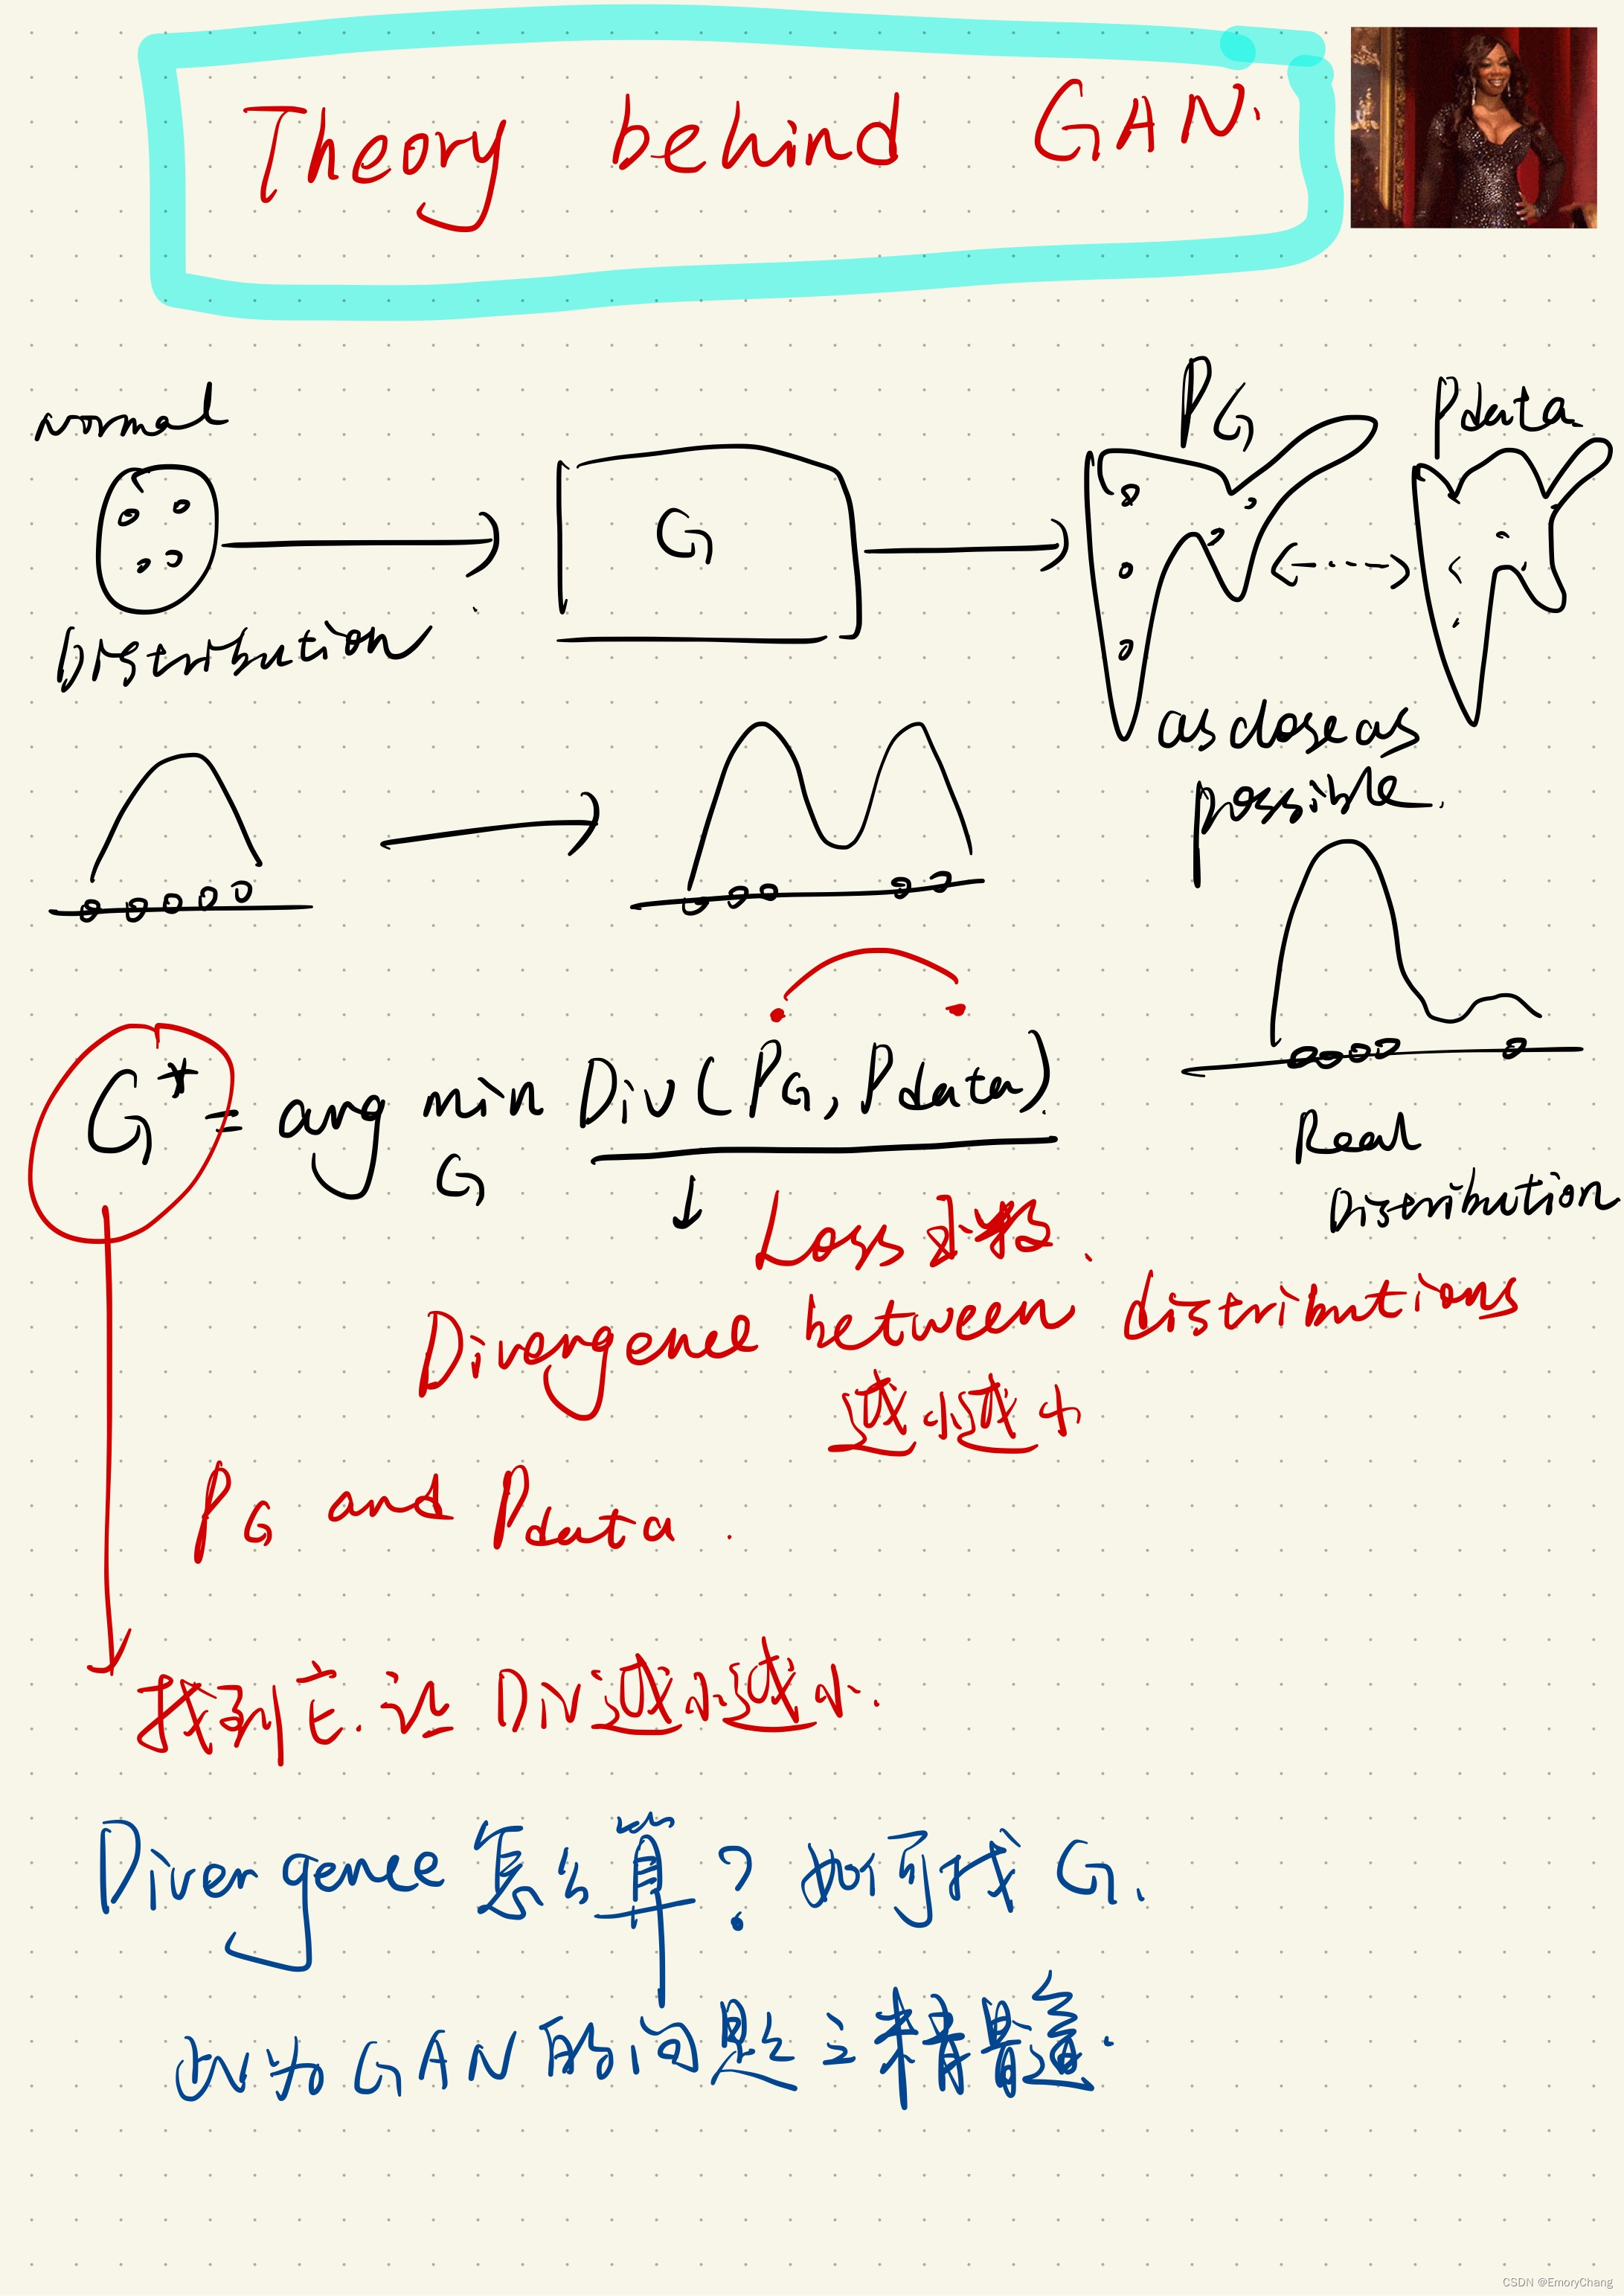 Theory behind GAN.
normal
Distribution
G
PG
Pdata
as close as
possible.
G* = arg min Div(PG, Pdata)
G
Real
Distribution
Loss 函数.
Divergence between distributions
越小越小
PG and Pdata.
找到它.让 Div越小越小.
Divergence 怎么算? 如何找 G.
此为GAN的问题之精髓.
CSDN @EmoryChang